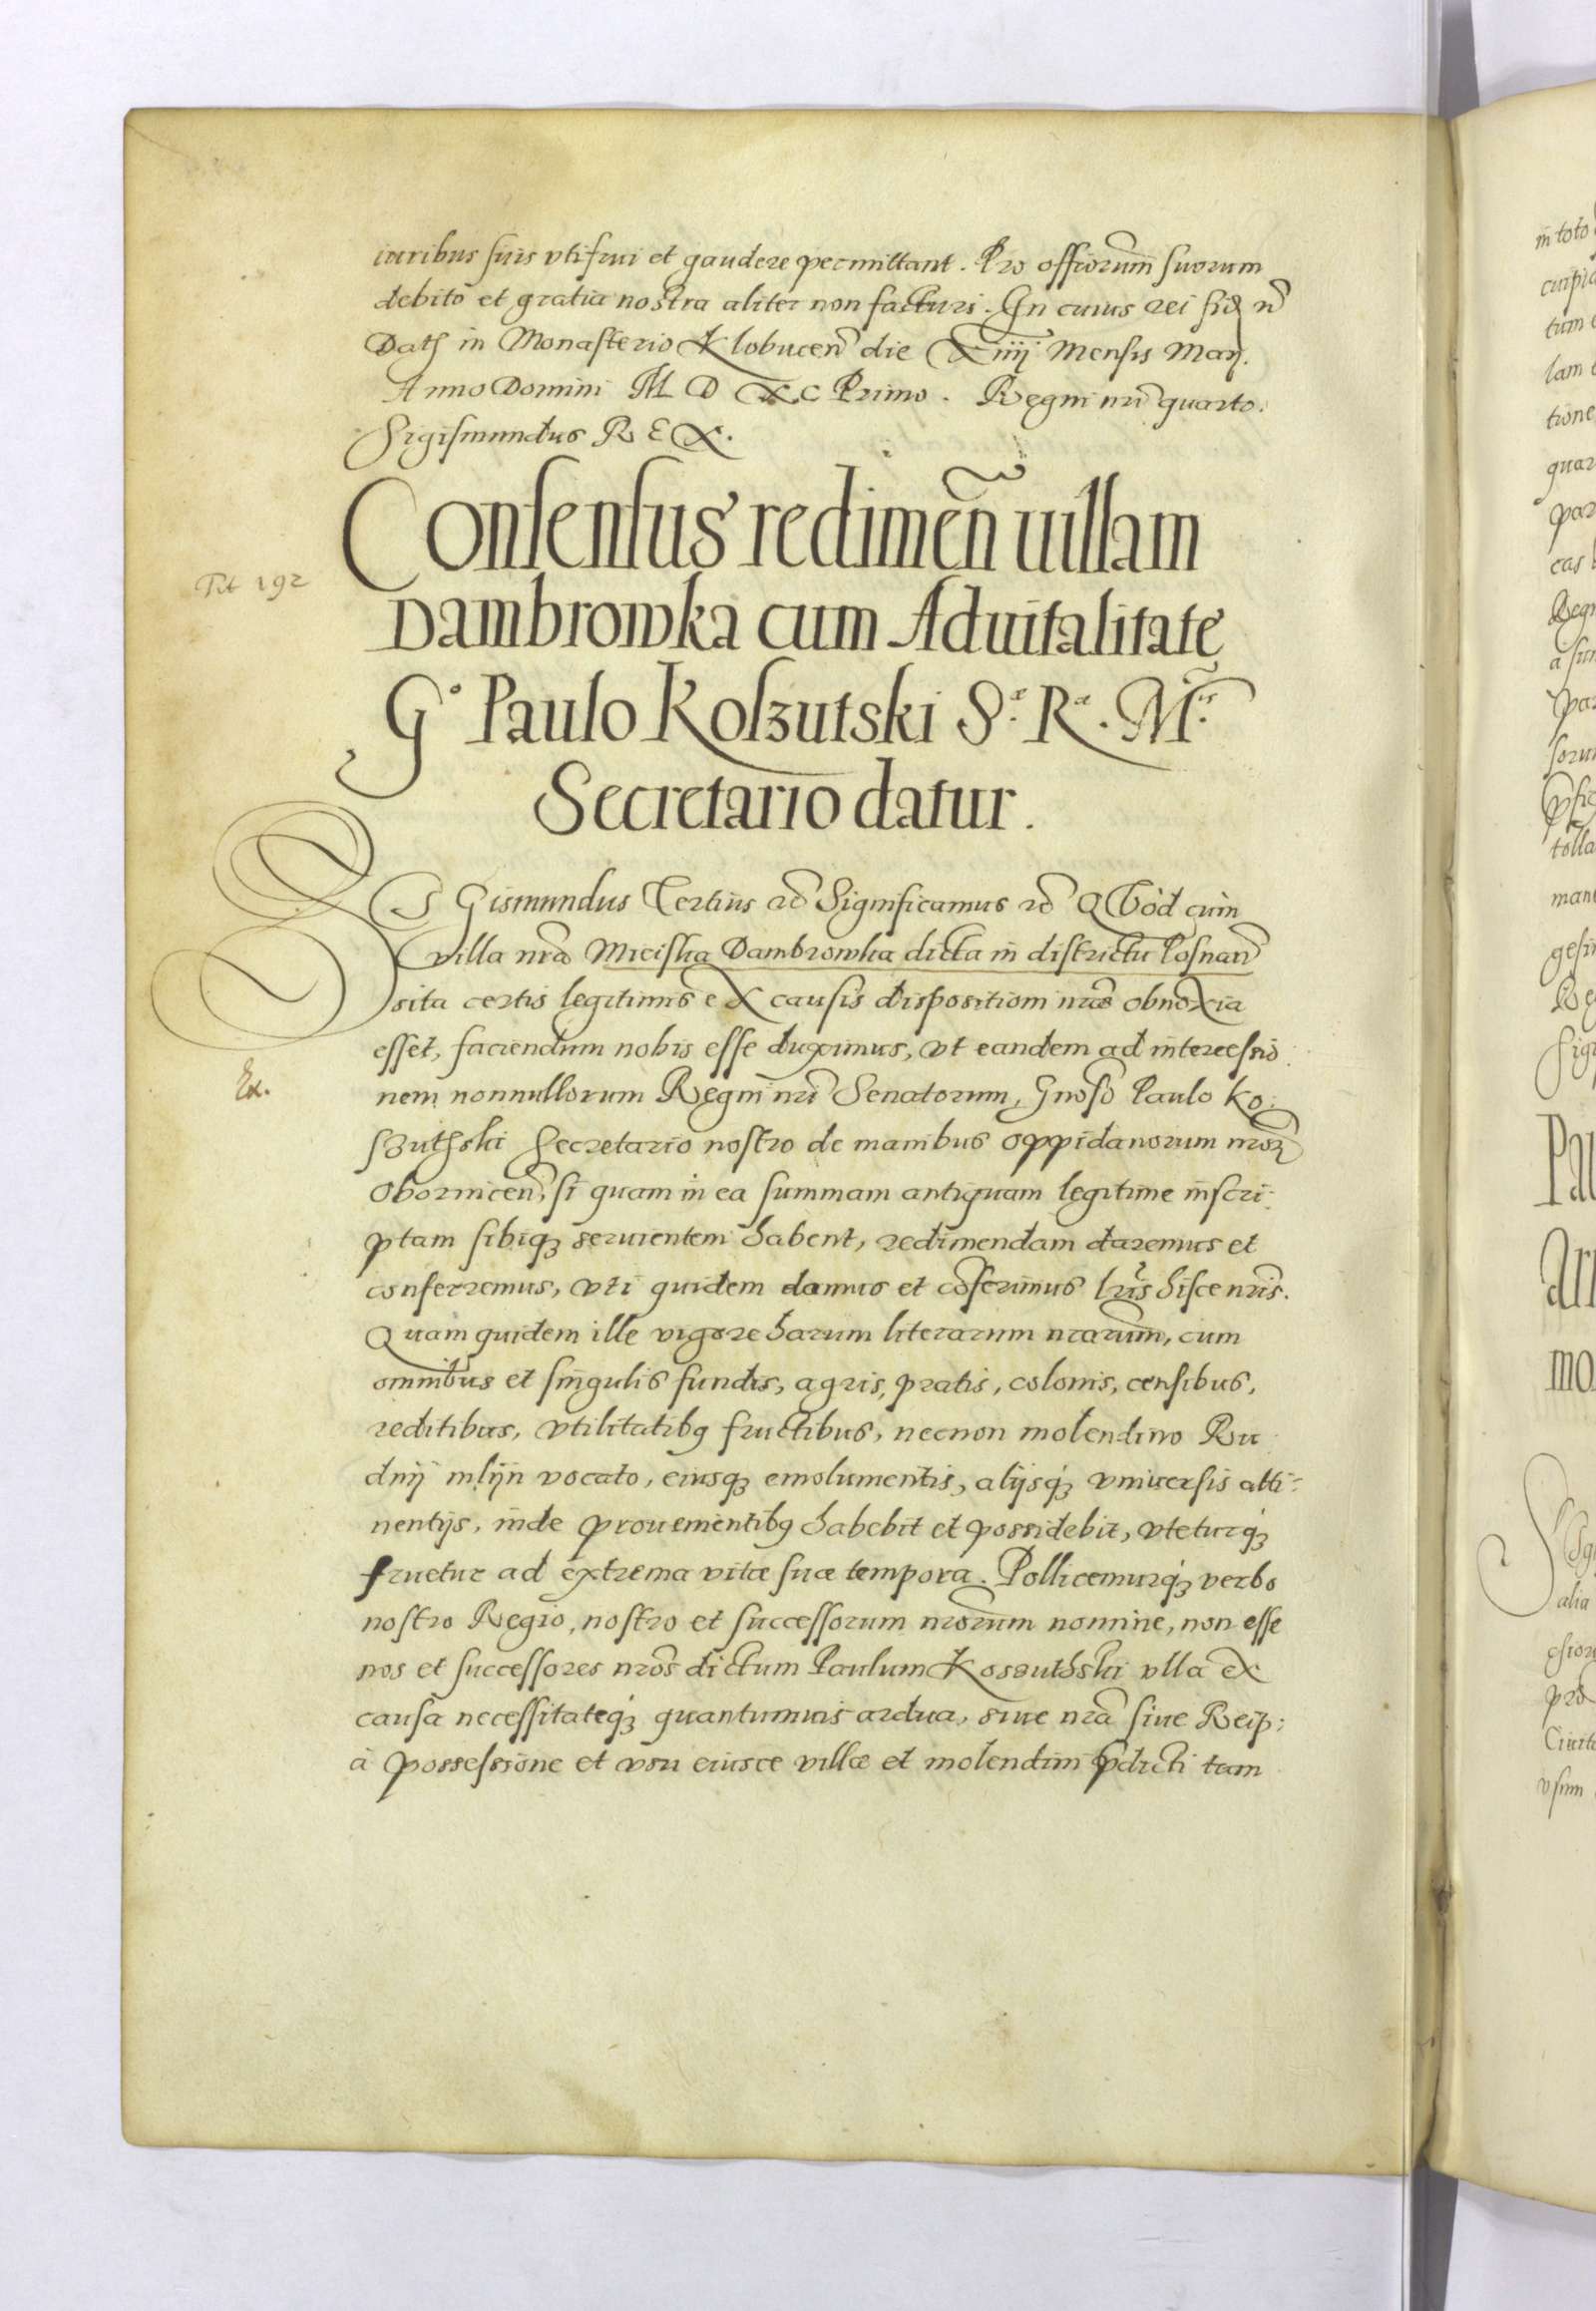 iuribus suis vtifrui et gaudere permittant. Pro officiorum suorum
debito et gratia nostra aliter non facturi. In cuius rei fid n̄
Dat in Monasterio Klobucen̄ die Xiiij Mensis Maij.
Anno Domini M D XC Primo. Regni nr̄i quarto.
Sigismundus REX.
Consensus redimen̄ uillam
Dambrowka cum Aduitalitate
G° Paulo Koszutski S.ᵉ R.ᵉ M.ᵗⁱˢ
Secretario datur.
Tit 192
SIGismundus Tertius &c Significamus &c QVòd cùm
villa nr̄a Mieiska Dambrowka dicta in districtu Posnan̄
sita certis legitimis eX causis dispositioni nr̄ae obnoxia
esset, faciendum nobis esse duximus, vt eandem ad intercessio
Ex.
nem nonnullorum Regni nr̄i Senatorum, Gnoso Paulo Ko:
szuthski Secretario nostro de manibus oppidanorum nror̄
Obornicen̄, si quam in ea summam antiquam legitime inscri:
ptam sibiqꝫ seruientem habent, redimendam daremus et
conferremus, vti quidem damus et cōferimus lr̄is hisce nr̄is.
Quam quidem ille vigore harum literarum nrarum, cum
omnibus et singulis fundis, agris, pratis, colonis, censibus,
reditibus, vtilitatibꝫ fructibus, necnon molendino Ru
dnÿ mlÿn vocato, eiusqꝫ emolumentis, alijsqꝫ vniuersis atti=
nentijs, inde prouenientibꝫ habebit et possidebit, vteturqꝫ
fruetur ad extrema vitæ suæ tempora. Pollicemurqꝫ verbo
nostro Regio, nostro et successorum nrorum nomine, non esse
nos et successores nros dictum Paulum Koszuthski vlla ex
causa necessitateqꝫ quantumuis ardua, siue nr̄a siue Reip:
à possessione et vsu eiusce villæ et molendini p̄dicti tam